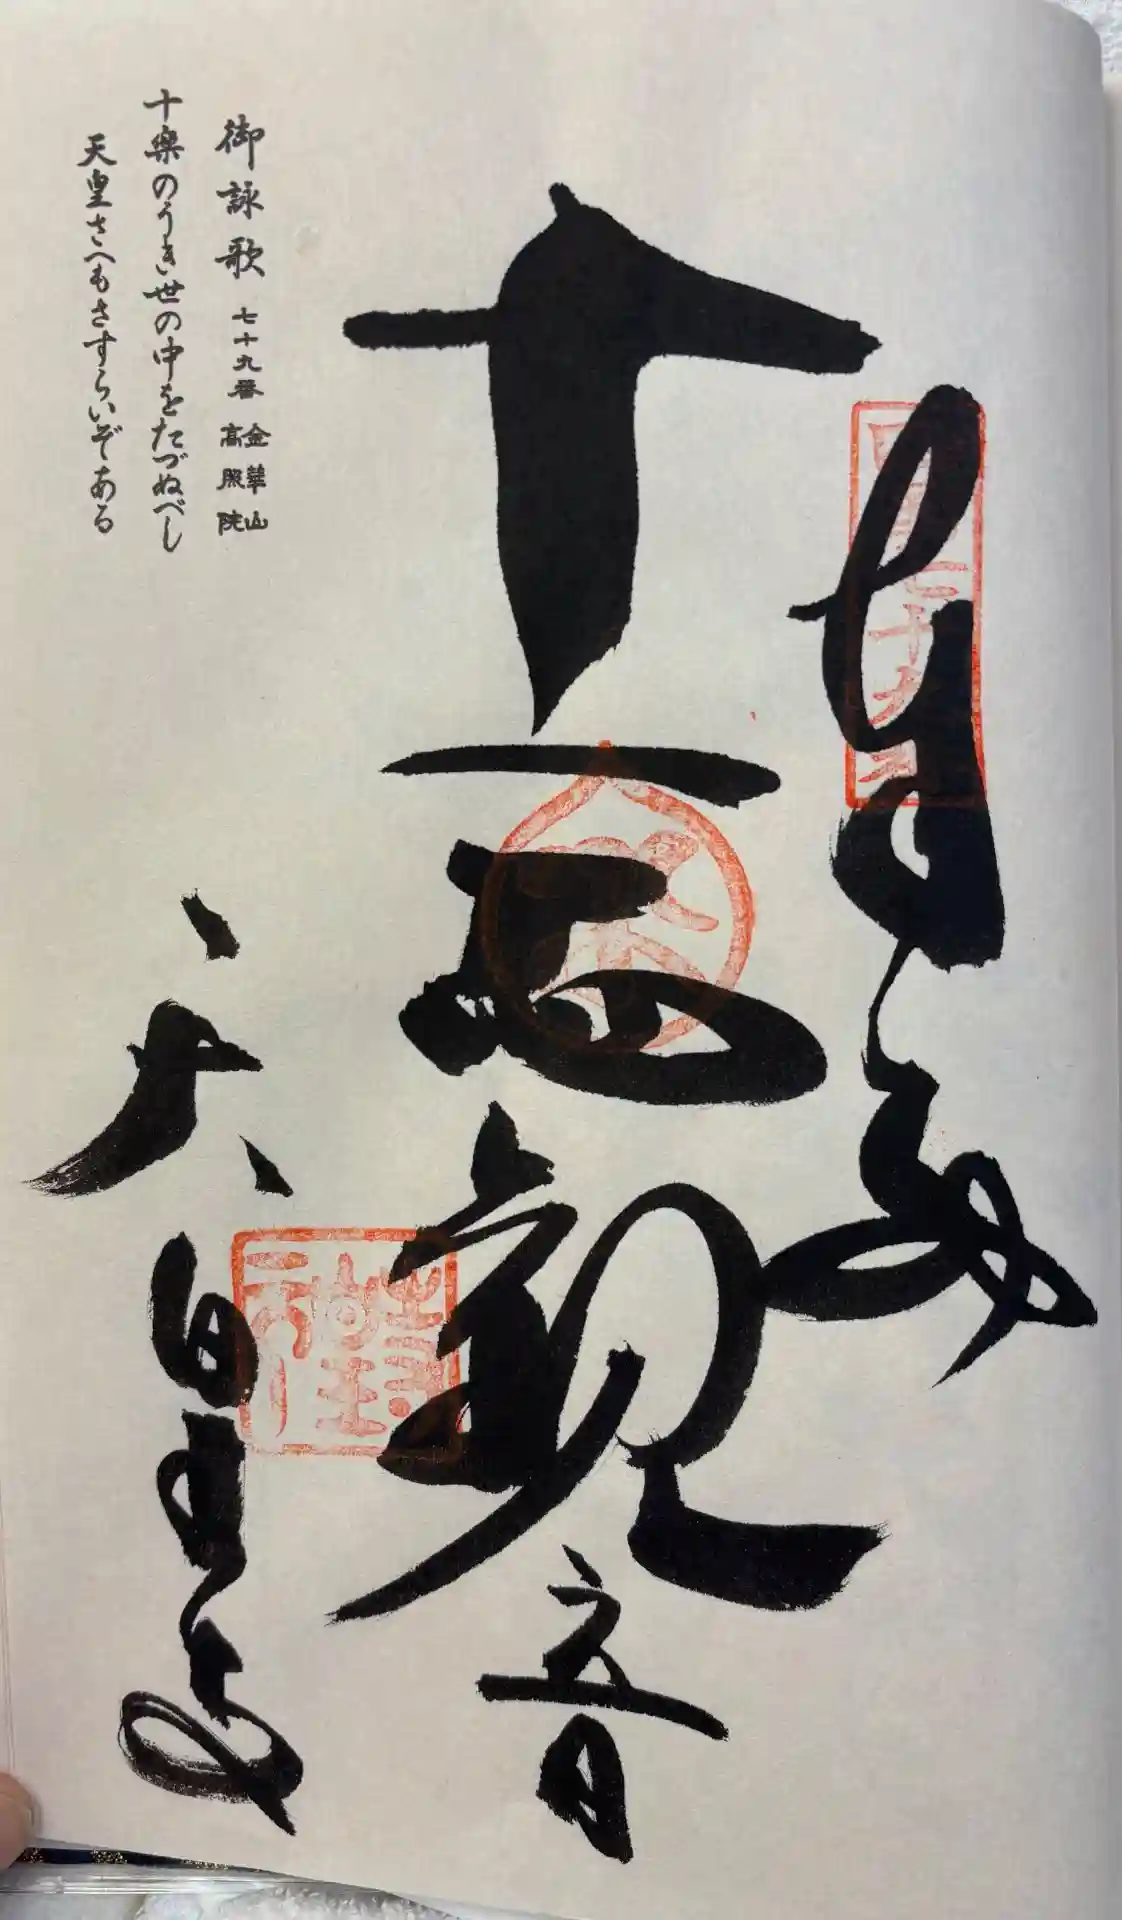 奉拝
十一面観音
天皇寺
四国七十九番
御詠歌 七十九番 金華山 高照院
十楽のうき世の中をたづぬべし
天皇さへもさすらいぞある